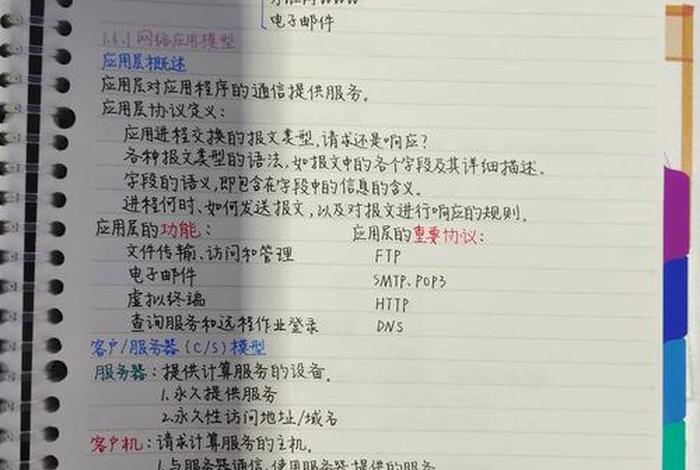 电子邮件
1.6.1 网络应用模型
应用层概述
应用层对应用程序的通信提供服务。
应用层协议定义：
应用进程交换的报文类型，请求还是响应？
各种报文类型的语法，如报文中的各个字段及其详细描述。
字段的语义，即包含在字段中的信息的含义。
进程何时、如何发送报文，以及对报文进行响应的规则。
应用层的功能： 应用层的重要协议：
文件传输、访问和管理 FTP
电子邮件 SMTP、POP3
虚拟终端 HTTP
查询服务和远程作业登录 DNS
客户/服务器(C/S)模型
服务器：提供计算服务的设备。
1.永久提供服务
2.永久性访问地址/域名
客户机：请求计算服务的主机。
1.与服务器通信，使用服务器提供的服务